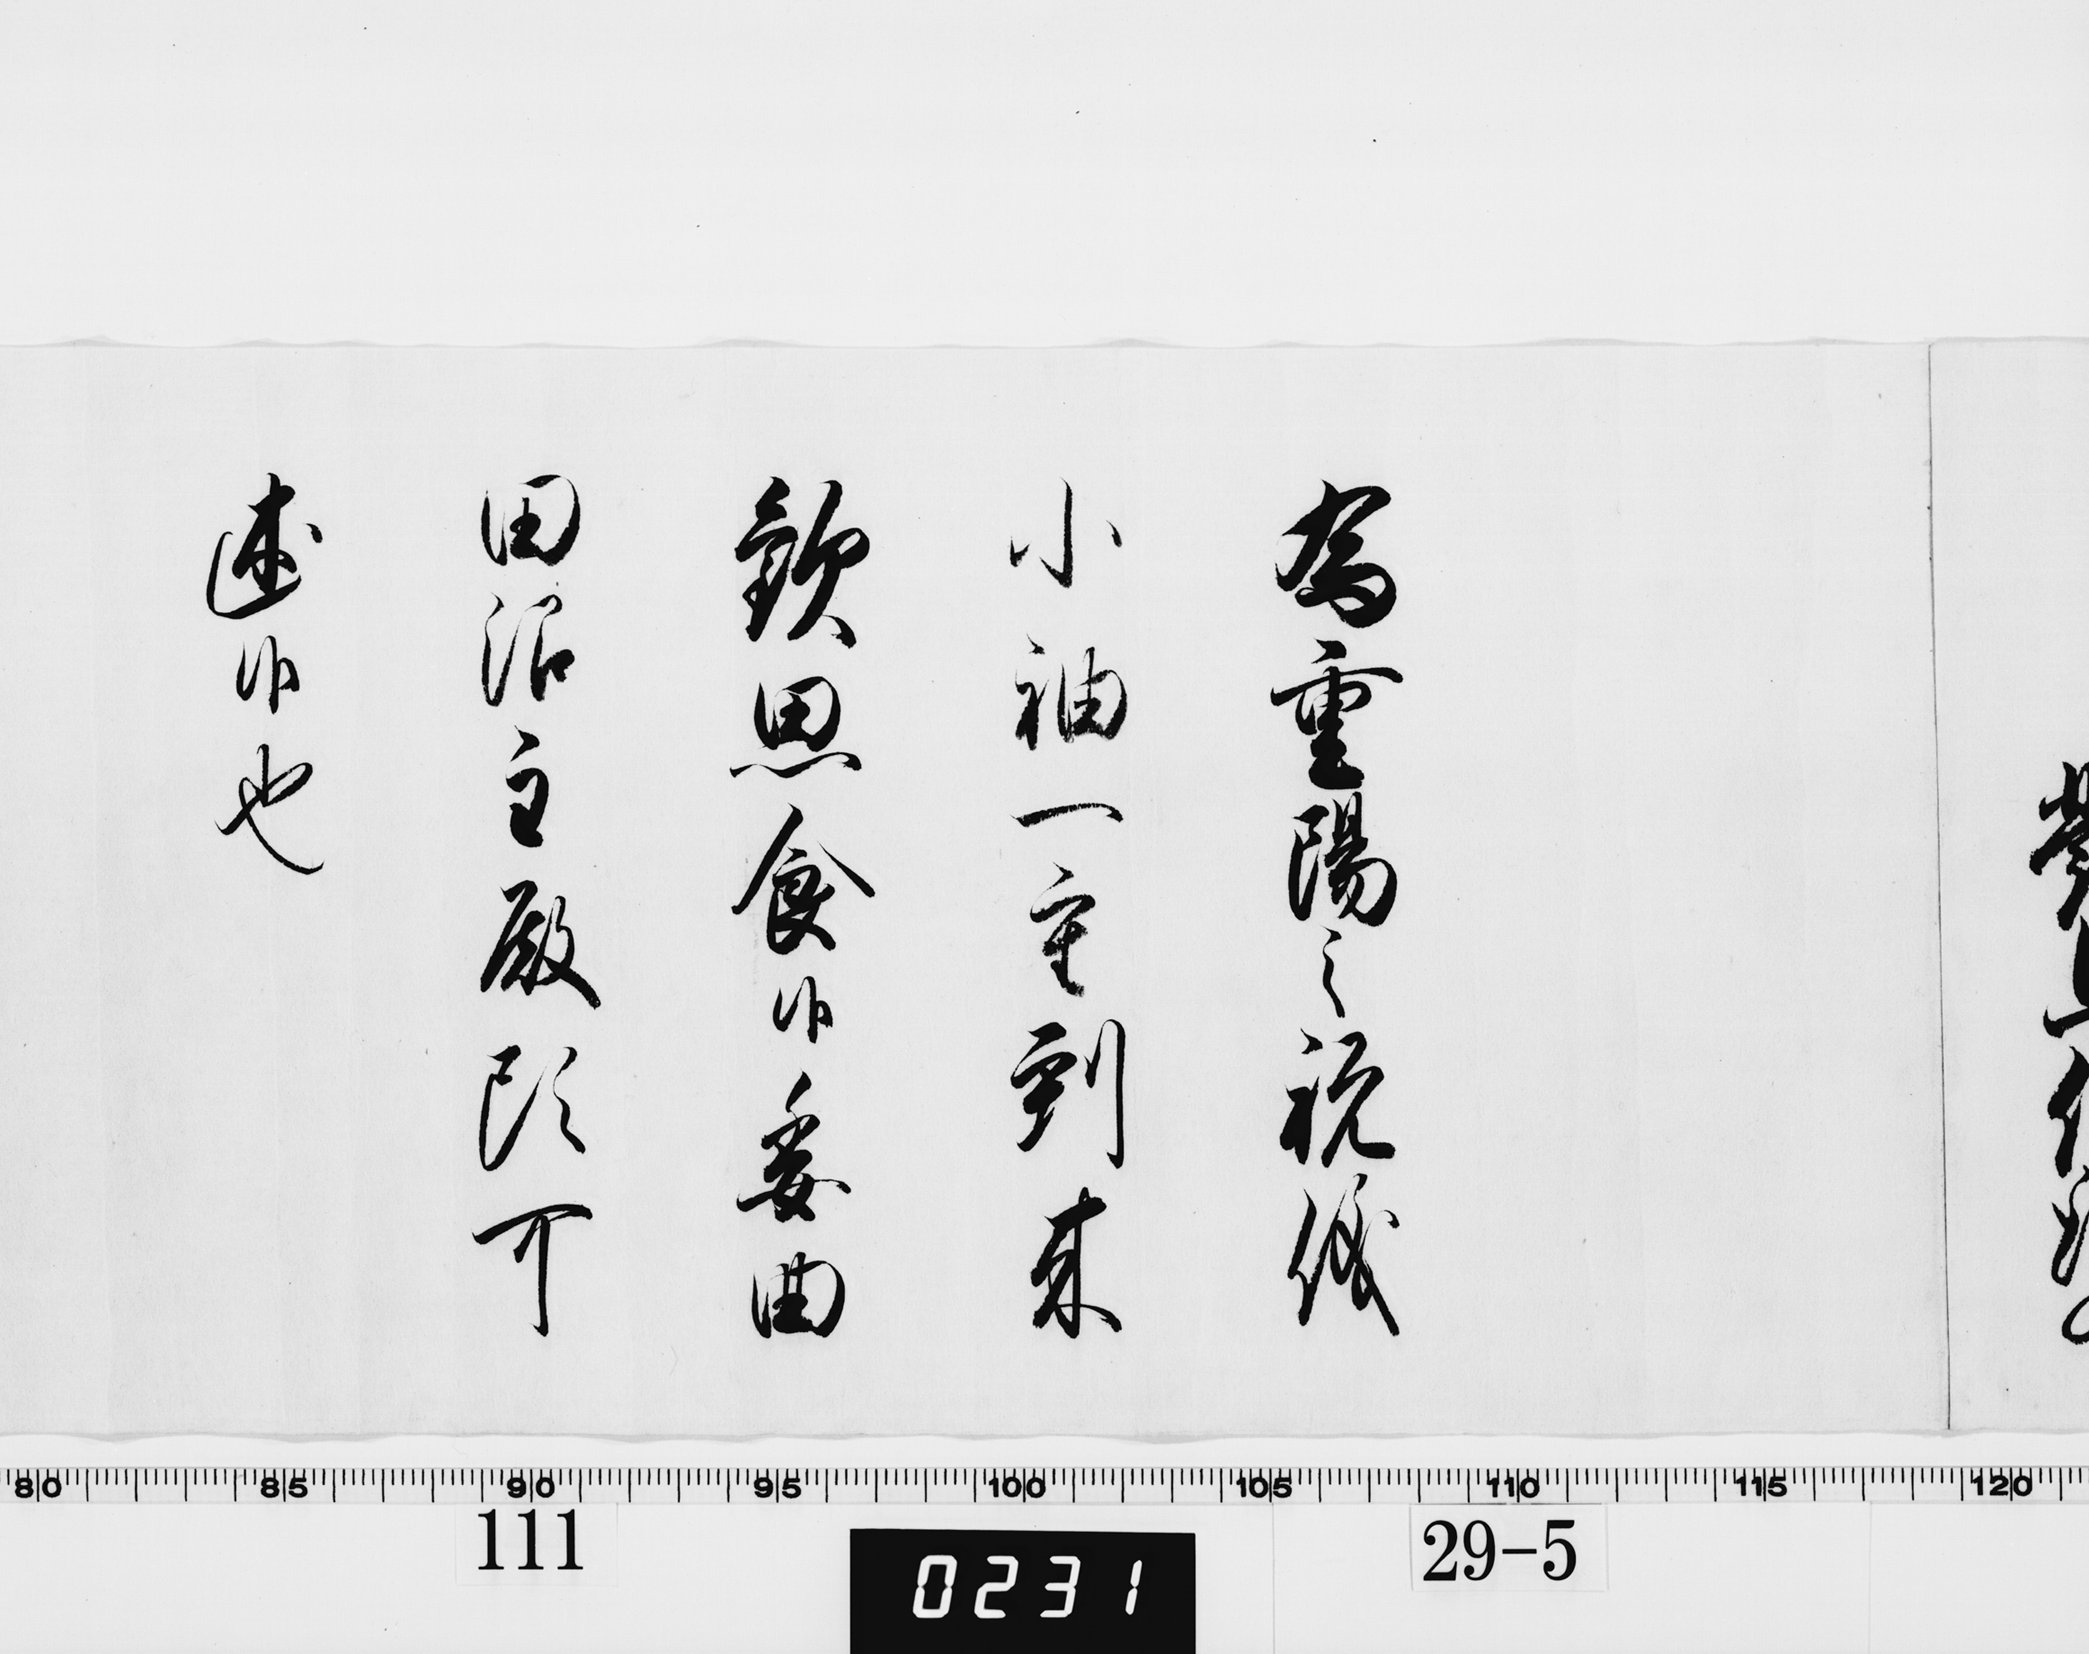 為重陽之祝儀
小袖一重到来
歓思食候委曲
田沼主殿頭可
述候也
80 85 90 95 100 105 110 115 120
111
0231
29-5